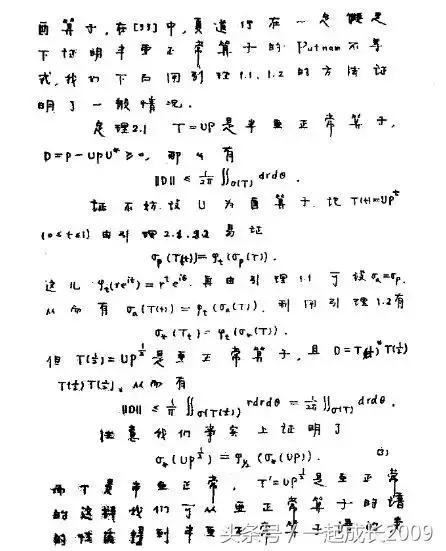 酉算子，在[33]中，夏道行在一定假定
下证明半亚正常算子的 Putnam 不等
式，我们下面用引理1.1，1.2的方法证
明了一般情况。
定理2.1 T=UP是半亚正常算子，
D=P-UPU*≥0，那么有
‖D‖ ≤ 1/2π ∬σ(T) drdθ.
证 不妨设 U 为酉算子. 记 T(t)=UP^t
(0≤t≤1) 由引理 易证
σp(T(t))=φt(σp(T)).
这儿 φt(re^iθ)=r^t e^iθ. 再由引理1.1可设σa=σp.
从而有 σa(T(t))=φt(σa(T)). 利用引理1.2有
σ*(Tt)=φt(σ*(T)).
但 T(½)=UP^½ 是亚正常算子，且 D=T(½)*T(½)
T(½)T(½)*. 从而有
‖D‖ ≤ 1/π ∬σ(T(½)) rdrdθ = 1/2π ∬σ(T) drdθ.
注意我们事实上证明了
σ*(UP^½)=φ½(σ*(UP)).
而T是半亚正常，T'=UP^½是亚正常
的 这样我们可以从亚正常算子的谱
的 得到半亚正常算子谱的
头条号 / 一起成长2009